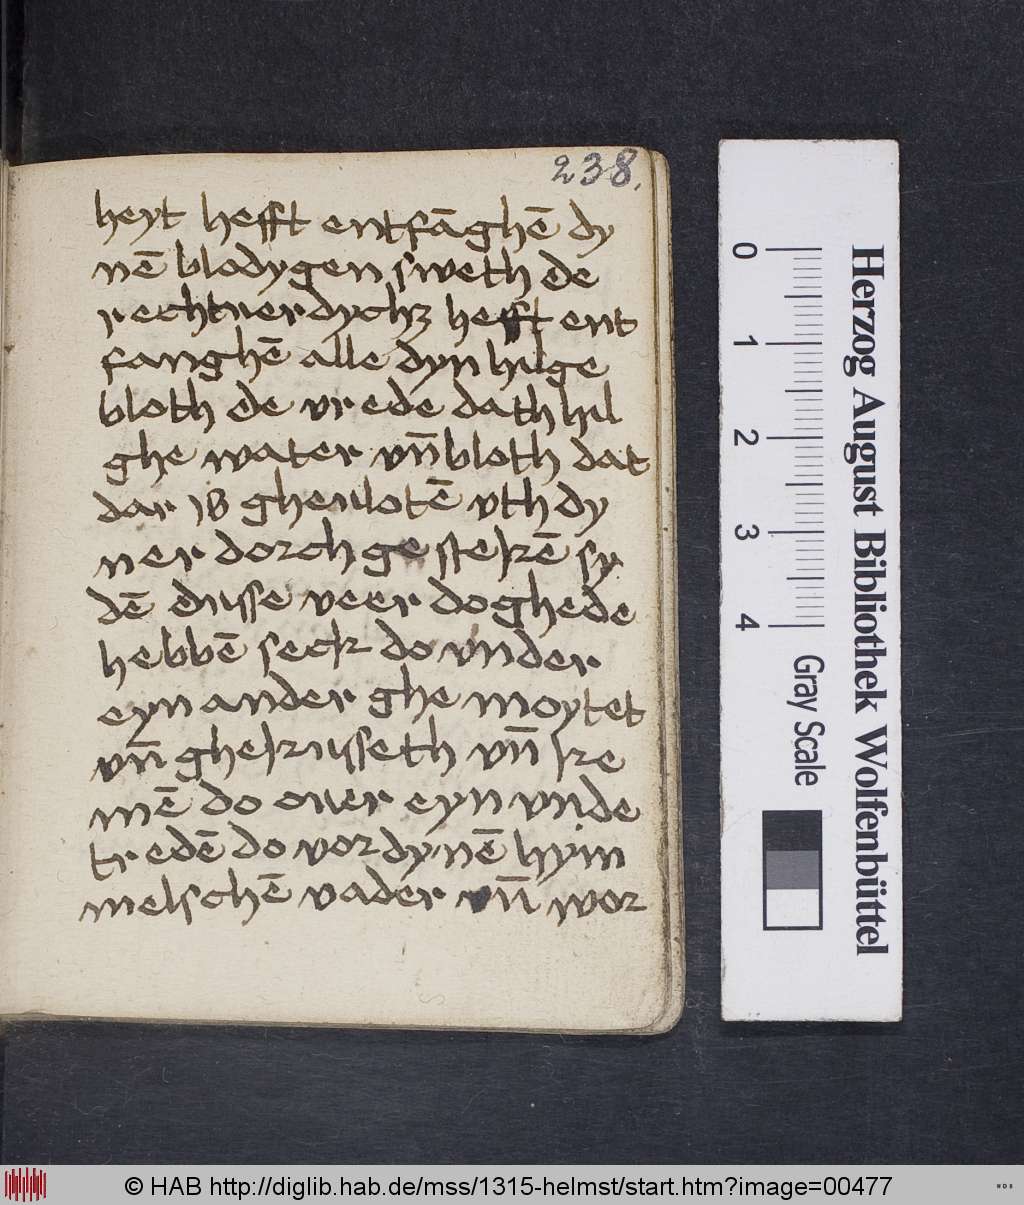 238.
heyt hefft entfāghē dy
nē blodygen sweth de
rechtuerdychz hefft ent
fanghē alle dyn hilge
bloth de vrede dath hil
ghe water vn̄ bloth dat
dar is gheulotē vth dy
ner dorch ge stekē sy
dē dusse veer doghede
hebbē seck do vnder
eyn ander ghe moytet
vn̄ ghekusseth vn̄ ke
mē do ouer eyn vnde
tredē do vor dynē hym
melschē vader vn̄ wor
0
1
2
3
4
Gray Scale
Herzog August Bibliothek Wolfenbüttel
© HAB http://diglib.hab.de/mss/1315-helmst/start.htm?image=00477